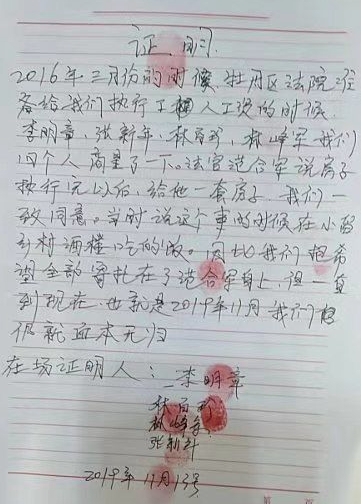 证明
2016年三月份的时候，牡丹区法院准
备给我们执行工程人工资的时候，
李明章，张新年，林百，林峰军我们
四个人商量了一下。法官造合军说房子
执行完以后，给他一套房子，我们一
致同意。当时说这个事的时候在小
村酒楼吃的饭。因此我们把希
望全部寄扎在了造合军身上，但一直
到现在，也就是2019年11月我们
依就血本无归
在场证明人：李明章
林百
林峰军
张新年
2019年11月13号